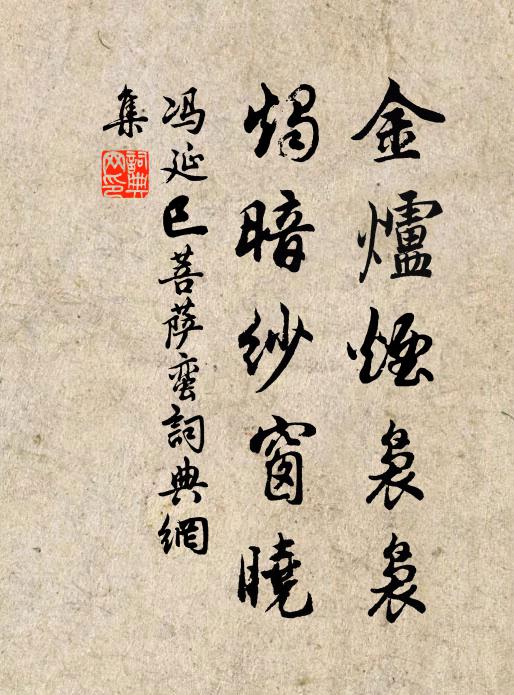 金爐煙裊裊
燭暗紗窗曉
冯延巳菩萨蛮詞典網
集
詞典网印